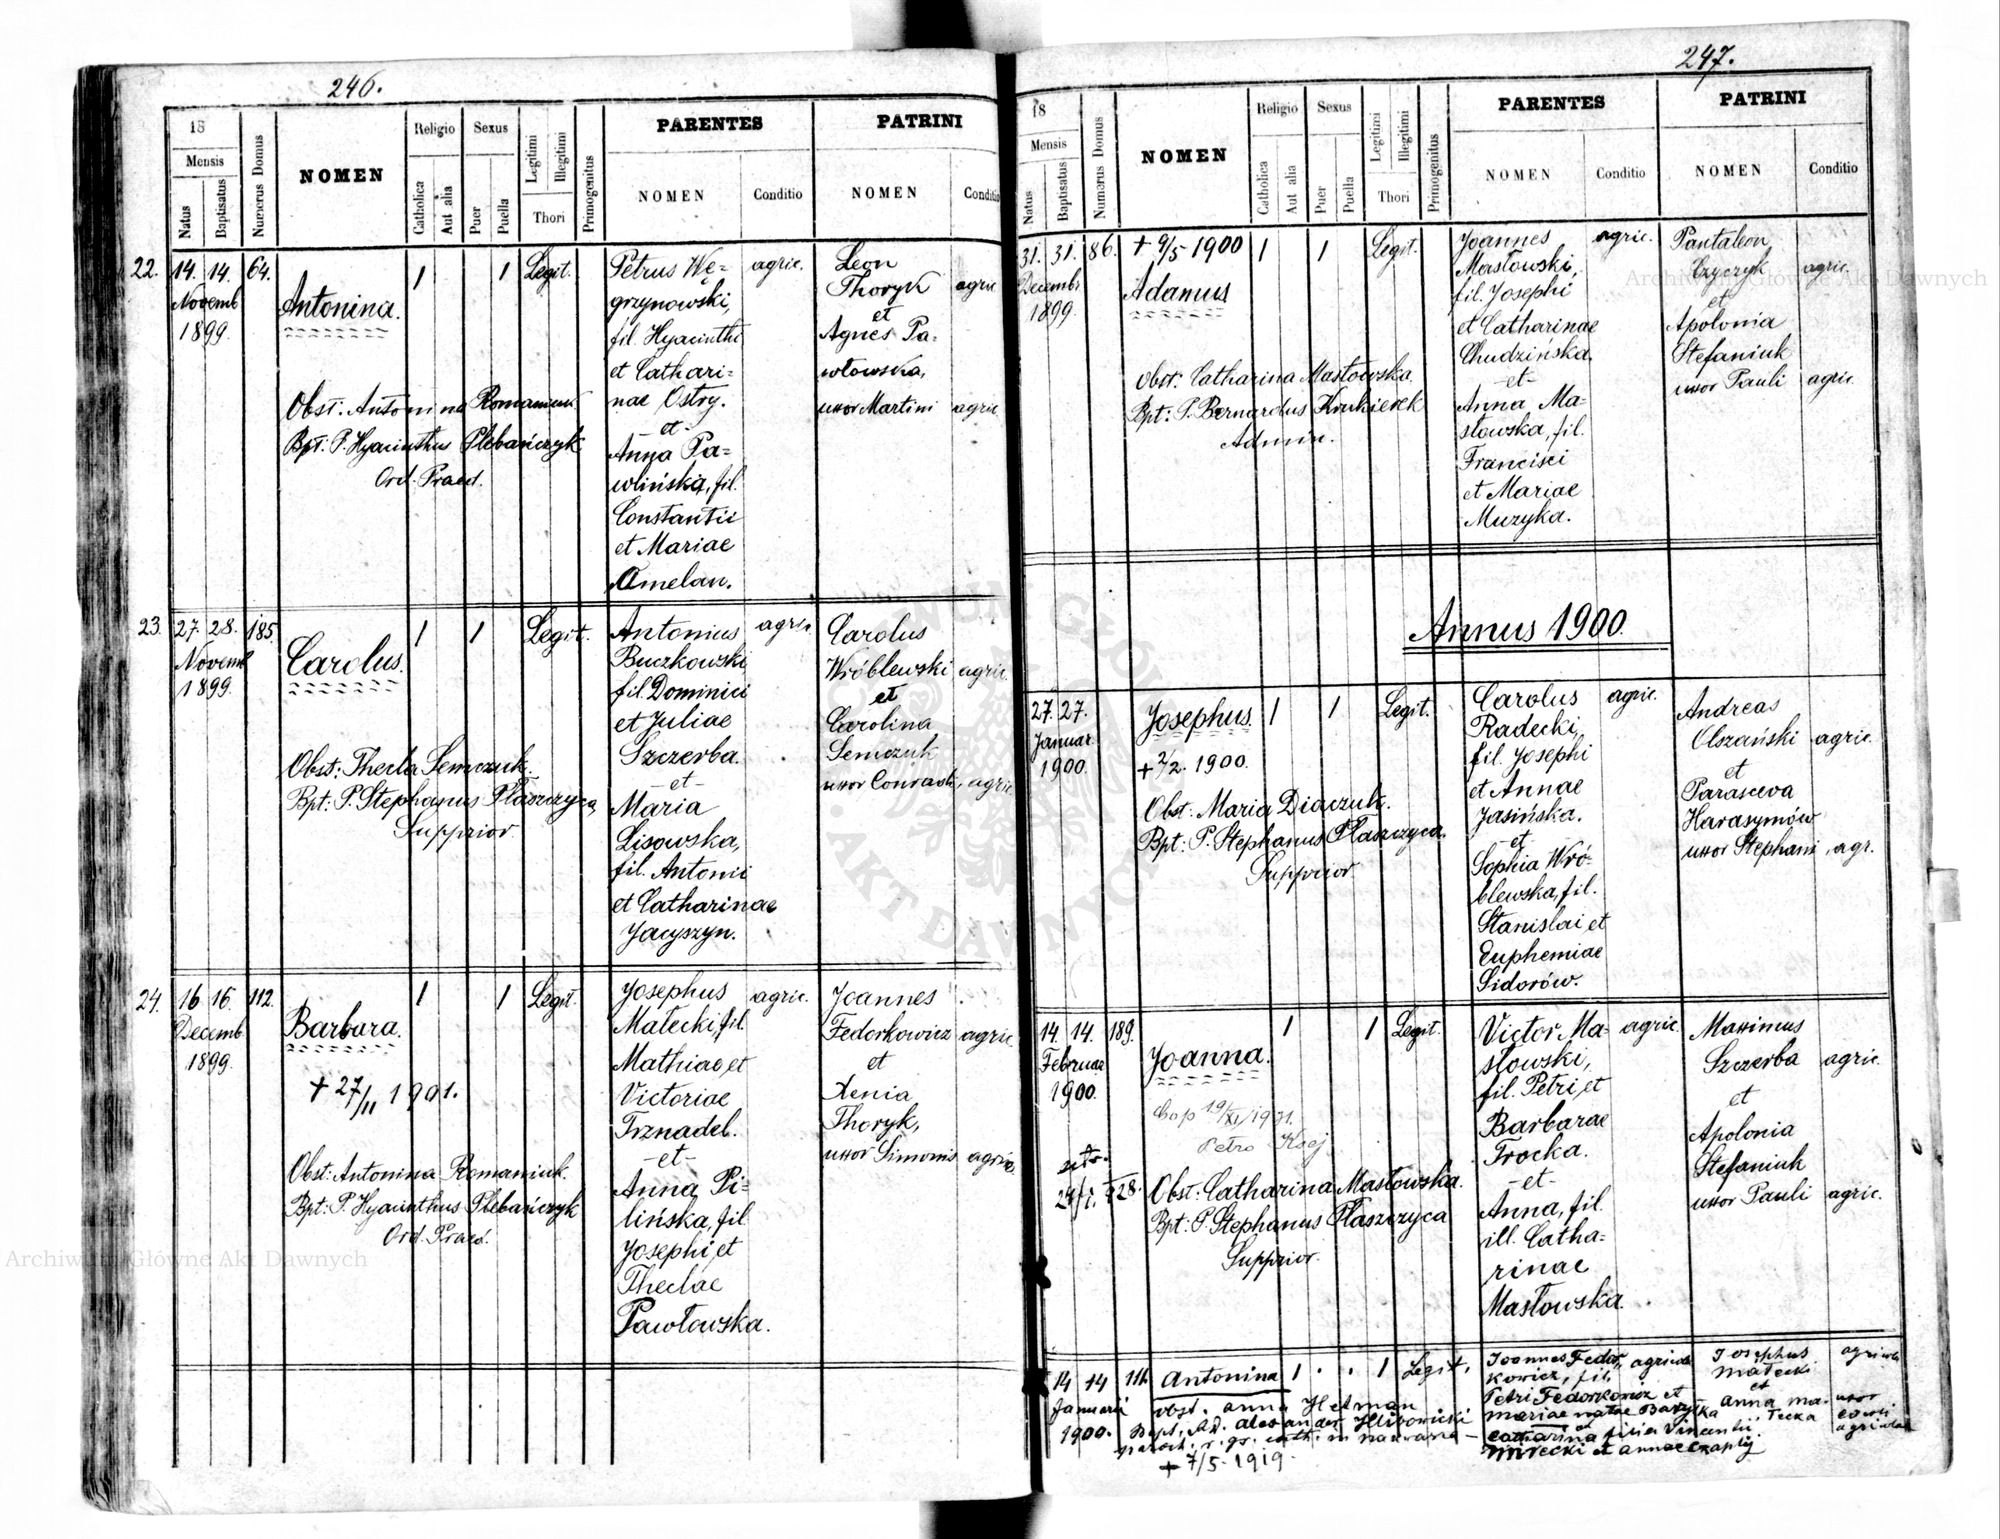 246.
18
Mensis
Natus
Baptisatus
Numerus Domus
NOMEN
Religio
Catholica
Aut alia
Sexus
Puer
Puella
Legitimi
Illegitimi
Thori
Primogenitus
PARENTES
NOMEN
Conditio
PATRINI
NOMEN
Conditio
22. 14. 14. 64.
Novemb
1899.
Antonina.
1 1 Legit.
Obst: Antonina Romaniuk
Bpt: P. Hyacinthus Plebańczyk
Ord. Praed.
Petrus Wę- agric.
grzynowski,
fil. Hyacinthi
et Cathari-
nae Ostry.
-et-
Anna Pa-
wlińska, fil.
Constantii
et Mariae
Omelan.
Leon
Thoryk agric
et
Agnes Pa-
włowska,
uxor Martini agric.
23. 27. 28. 185.
Novemb
1899.
Carolus.
1 1 Legit.
Obst: Thecla Semczuk.
Bpt: P. Stephanus Płaszczyca,
Supprior
Antonius agric.
Buczkowski
fil. Dominici
et Juliae
Szczerba.
-et-
Maria
Lisowska,
fil. Antonii
et Catharinae
Jacyszyn.
Carolus
Wróblewski agric.
et
Carolina
Semczuk
uxor Conradi, agric.
24. 16. 16. 112.
Decemb.
1899.
Barbara.
1 1 Legit.
+ 27/11 1901.
Obst: Antonina Romaniuk.
Bpt: P. Hyacinthus Plebańczyk
Ord. Praed.
Josephus agric.
Małecki, fil.
Mathiae et
Victoriae
Trznadel.
-et-
Anna Pi-
lińska, fil
Josephi et
Theclae
Pawłowska.
Joannes
Fedorkowicz agric.
et
Xenia
Thoryk,
uxor Simonis agric.
247.
18
Mensis
Natus
Baptisatus
Numerus Domus
NOMEN
Religio
Catholica
Aut alia
Sexus
Puer
Puella
Legitimi
Illegitimi
Thori
Primogenitus
PARENTES
NOMEN
Conditio
PATRINI
NOMEN
Conditio
31. 31. 86.
Decembr
1899.
+ 9/5 1900
Adamus
1 1 Legit.
Obst: Catharina Masłowska
Bpt: P. Bernardus Krukierek
Admin.
Joannes agric.
Masłowski,
fil. Josephi
et Catharinae
Chudzińska.
-et-
Anna Ma-
słowska, fil.
Francisci
et Mariae
Muzyka.
Pantaleon
Czyczyk agric.
et
Apolonia
Stefaniuk
uxor Pauli agric.
Annus 1900.
27. 27.
Januar.
1900.
Josephus.
1 1 Legit.
+ 2/2. 1900.
Obst: Maria Diaczuk.
Bpt: P. Stephanus Płaszczyca.
Supprior
Carolus agric.
Radecki,
fil. Josephi
et Annae
Jasińska.
-et-
Sophia Wró-
blewska, fil.
Stanislai et
Euphemiae
Sidorów.
Andreas
Olszański agric.
et
Parasceva
Harasymów
uxor Stephani, agr.
14. 14. 189.
Februar
1900.
Joanna.
1 1 Legit.
Petro
Obst: Catharina Masłowska.
Bpt: P. Stephanus Płaszczyca
Supprior.
Victor Ma- agric.
słowski,
fil. Petri et
Barbarae
Trocka.
-et-
Anna, fil.
ill. Catha-
rinae
Masłowska.
Maximus
Szczerba agric.
et
Apolonia
Stefaniuk
uxor Pauli agric.
14 14 116.
Januarii
1900.
Antonina 1 . . 1 Legit.
obst. Anna Hetman
+ 7/5. 1919.
Joannes Fedor- agricola
kowicz, fil.
Petri Fedorkowicz et
Mariae natae
Catharina filia Vincentii
Mirecki et Annae Czaply
Josephus agricola
Małecki
et
Anna Ma- uxor
łecka
agricolae
Archiwum Główne Akt Dawnych
Archiwum Główne Akt Dawnych
ARCHIWUM GŁÓWNE
AKT DAWNYCH